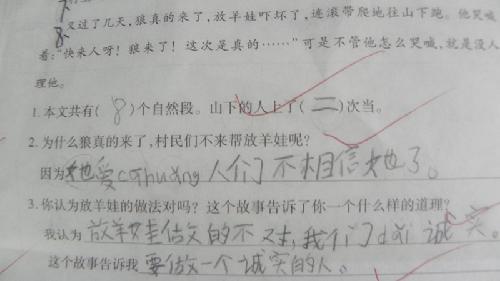 又过了几天，狼真的来了，放羊娃吓坏了，连滚带爬地往山下跑。他哭喊
8.
着：“快来人呀！狼来了！这次是真的……”可是不管他怎么哭喊，就是没人
理他。
1.本文共有(8)个自然段。山下的人上了(二)次当。
2.为什么狼真的来了，村民们不来帮放羊娃呢？
因为他爱cāhuǎng人们不相信他了。
3.你认为放羊娃的做法对吗？这个故事告诉了你一个什么样的道理？
我认为放羊娃做的不对，我们dāi诚实。
这个故事告诉我要做一个诚实的人。